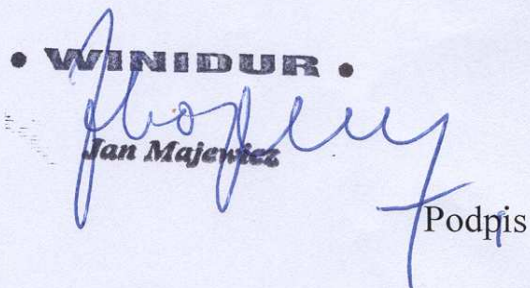 • WINIDUR •
Jan Majewicz
Podpis